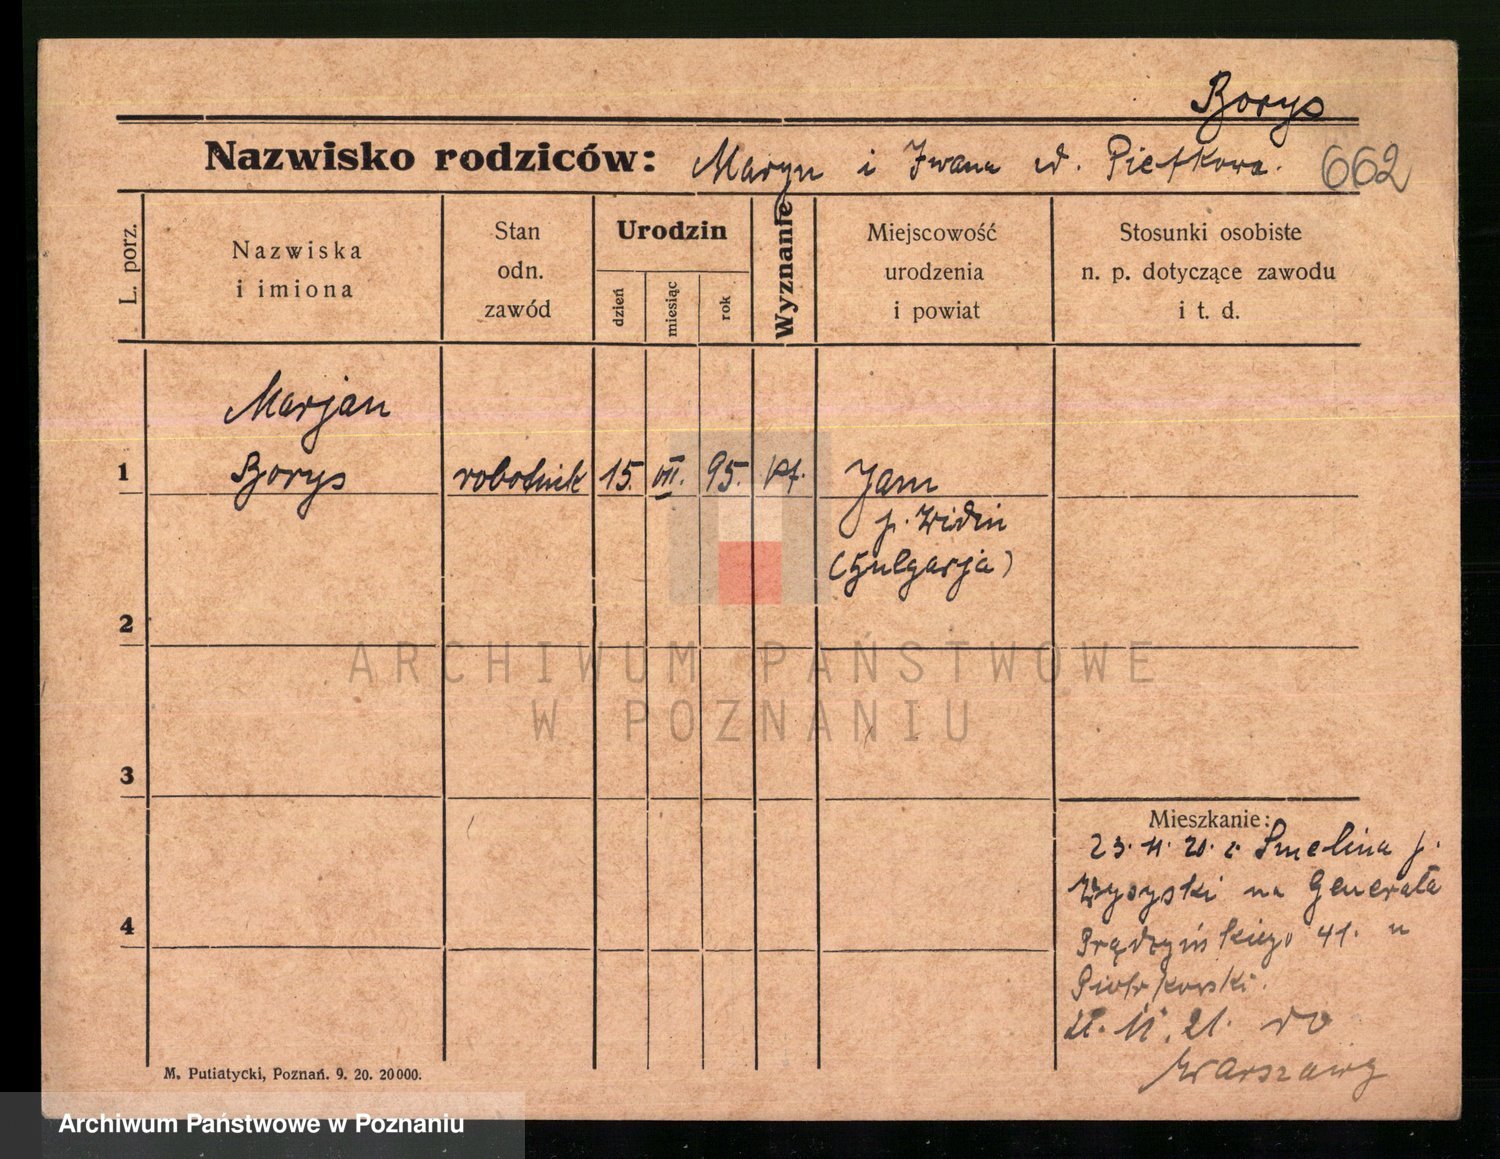 Borys
Nazwisko rodziców: Maryn i Iwana zd. Pietkowa. 662
L. porz.
Nazwiska
i imiona
Stan
odn.
zawód
Urodzin
dzień
miesiąc
rok
Wyznanie
Miejscowość
urodzenia
i powiat
Stosunki osobiste
n. p. dotyczące zawodu
i t. d.
Marjan
1 Borys robotnik 15. VII. 95. kt. Jam
p. Widin
(Bulgarja)
2
3
4
Mieszkanie:
23. 11. 20. z Smelina p.
Wyszyski na Generała
Prądzyńskiego 41. u
Piotrkowski.
11. 21. do
Warszawy
M. Putiatycki, Poznań. 9. 20. 20000.
ARCHIWUM PAŃSTWOWE
W POZNANIU
Archiwum Państwowe w Poznaniu